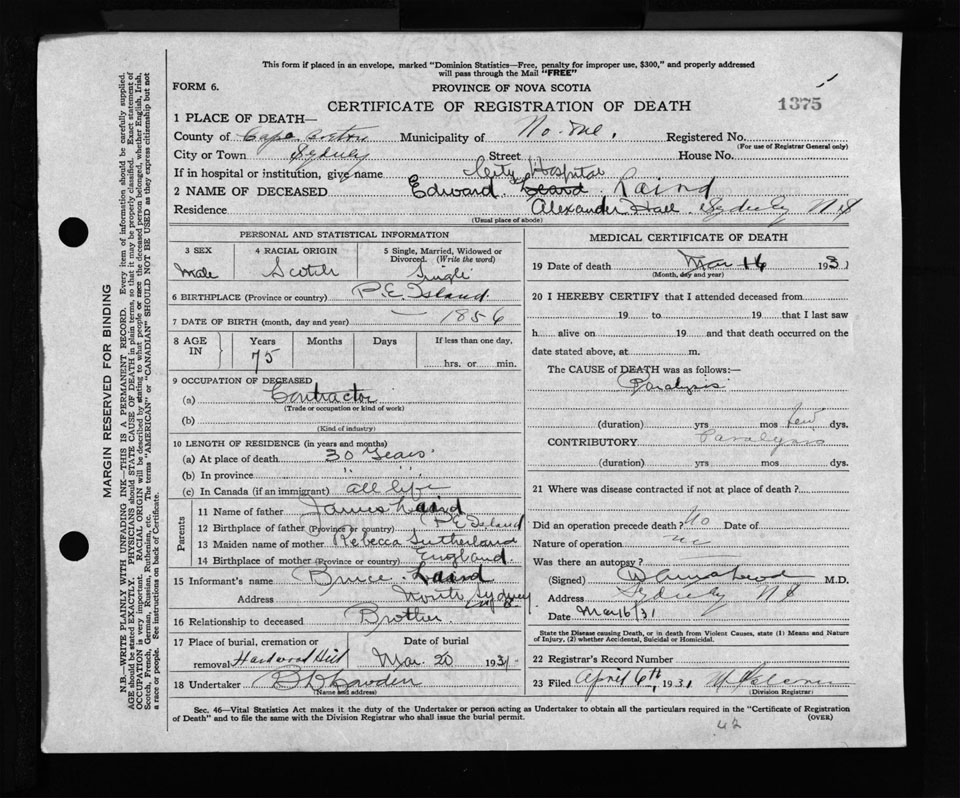 This form if placed in an envelope, marked "Dominion Statistics—Free, penalty for improper use, $300," and properly addressed
will pass through the Mail "FREE"
FORM 6.
PROVINCE OF NOVA SCOTIA
1375
CERTIFICATE OF REGISTRATION OF DEATH
1 PLACE OF DEATH—
County of Cape Breton Municipality of Registered No.
(For use of Registrar General only)
City or Town Sydney Street House No.
If in hospital or institution, give name City Hospital
2 NAME OF DECEASED Edward Laird
Residence Alexander Hall Sydney N S
(Usual place of abode)
PERSONAL AND STATISTICAL INFORMATION
3 SEX 4 RACIAL ORIGIN 5 Single, Married, Widowed or
Divorced. (Write the word)
Male Scotch Single
6 BIRTHPLACE (Province or country) P.E. Island
7 DATE OF BIRTH (month, day and year) — 1856
8 AGE IN Years Months Days If less than one day,
75 hrs. or min.
9 OCCUPATION OF DECEASED
(a) Contractor
(Trade or occupation or kind of work)
(b)
(Kind of industry)
10 LENGTH OF RESIDENCE (in years and months)
(a) At place of death 30 Years
(b) In province " "
(c) In Canada (if an immigrant) all life
Parents
11 Name of father James Laird
12 Birthplace of father (Province or country) P E Island
13 Maiden name of mother Rebecca Sutherland
14 Birthplace of mother (Province or country) England
15 Informant's name Bruce Laird
Address North Sydney
16 Relationship to deceased Brother
17 Place of burial, cremation or Date of burial
removal Hardwood Hill Mar. 20 1931
18 Undertaker
(Name and address)
MEDICAL CERTIFICATE OF DEATH
19 Date of death Mar 16 1931
(Month, day and year)
20 I HEREBY CERTIFY that I attended deceased from
19 to 19 that I last saw
h alive on 19 and that death occurred on the
date stated above, at m.
The CAUSE of DEATH was as follows:—
Paralysis
(duration) yrs mos few dys.
CONTRIBUTORY Paralysis
(duration) yrs mos dys.
21 Where was disease contracted if not at place of death?
Did an operation precede death? No Date of
Nature of operation
Was there an autopsy?
(Signed) M.D.
Address Sydney N S
Date Mar 16/31
State the Disease causing Death, or in death from Violent Causes, state (1) Means and Nature
of Injury, (2) whether Accidental, Suicidal or Homicidal.
22 Registrar's Record Number
23 Filed April 6th, 1931
(Division Registrar)
Sec. 46—Vital Statistics Act makes it the duty of the Undertaker or person acting as Undertaker to obtain all the particulars required in the "Certificate of Registration
of Death" and to file the same with the Division Registrar who shall issue the burial permit.
(OVER)
42
MARGIN RESERVED FOR BINDING
N.B.—WRITE PLAINLY WITH UNFADING INK—THIS IS A PERMANENT RECORD. Every item of information should be carefully supplied.
AGE should be stated EXACTLY. PHYSICIANS should STATE CAUSE OF DEATH in plain terms, so that it may be properly classified. Exact statement of
OCCUPATION is very important. RACIAL ORIGIN will be described by stating to what people or race the deceased person belonged, whether English, Irish,
Scotch, French, German, Russian, Ruthenian, etc. The terms "AMERICAN" or "CANADIAN" SHOULD NOT BE USED as they express citizenship but not
a race or people. See instructions on back of Certificate.